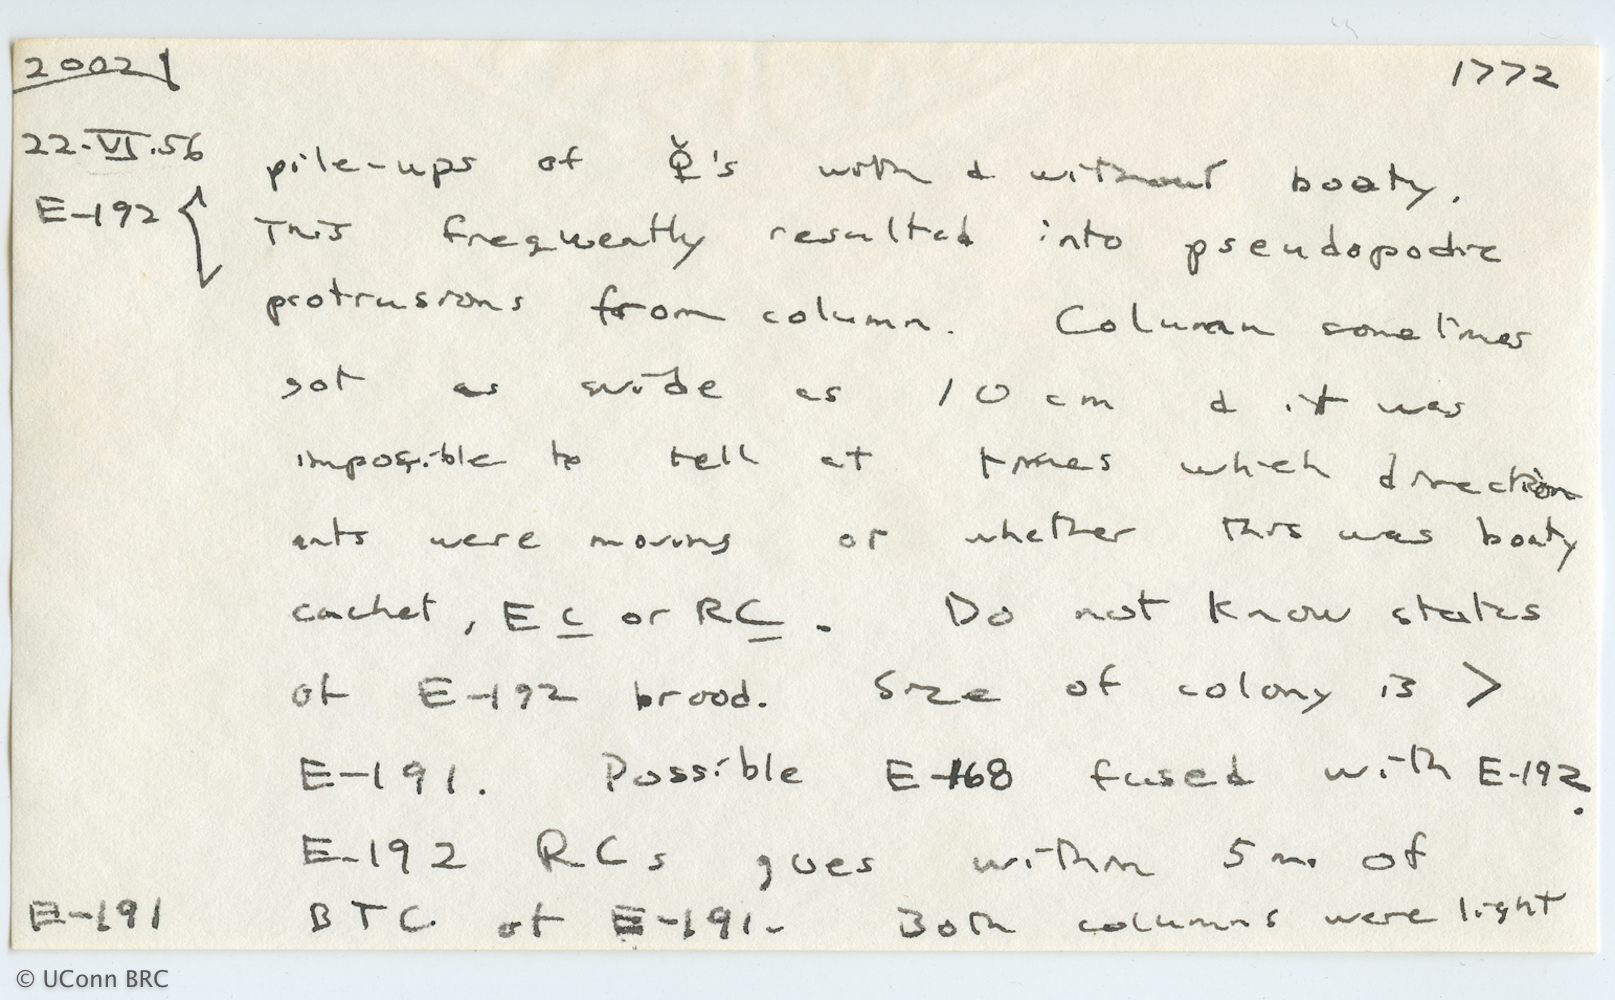 2002 1772
22-VI.56 pile-ups of ☿'s with & without booty.
E-192 { This frequently resulted into pseudopodic
protrusions from column. Column sometimes
got as wide as 10 cm & it was
impossible to tell at times which direction
ants were moving or whether this was booty
cachet, EC or RC. Do not know status
of E-192 brood. Size of colony is >
E-191. Possible E-168 fused with E-192.
E-192 RCs goes within 5 m. of
E-191 BTC of E-191. Both columns were light
© UConn BRC